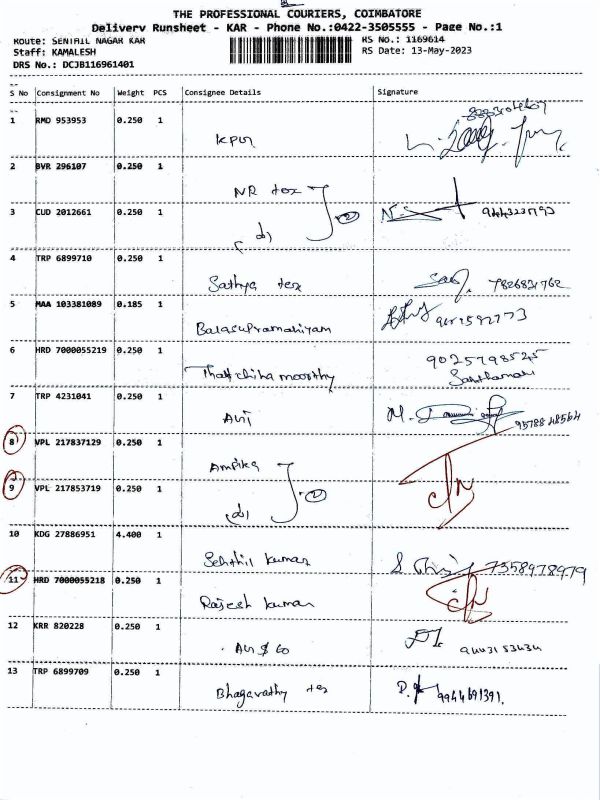 THE PROFESSIONAL COURIERS, COIMBATORE
Delivery Runsheet - KAR - Phone No.:0422-3505555 - Page No.:1
Route: SENTHIL NAGAR KAR
RS No.: 1169614
Staff: KAMALESH
RS Date: 13-May-2023
DRS No.: DCJB116961401
S No Consignment No Weight PCS Consignee Details Signature
1 RMD 953953 0.250 1
KPN
2 BVR 296107 0.250 1
NR tex
3 CUD 2012661 0.250 1
(d) 2
4 TRP 6899710 0.250 1
Sathya tex 7826831762
5 MAA 103381089 0.185 1
Balasupramaniyam
6 HRD 7000055219 0.250 1
9025798525
Thatchina moorthy
7 TRP 4231041 0.250 1
AVT 95788 48564
8 VPL 217837129 0.250 1
Ampika
9 VPL 217853719 0.250 1
(d) 2
10 KDG 27886951 4.400 1
Senthil kumar 7358978979
11 HRD 7000055218 0.250 1
Rajesh kumar
12 KRR 820228 0.250 1
9443153434
13 TRP 6899709 0.250 1
Bhagavathy tex 9944691391.